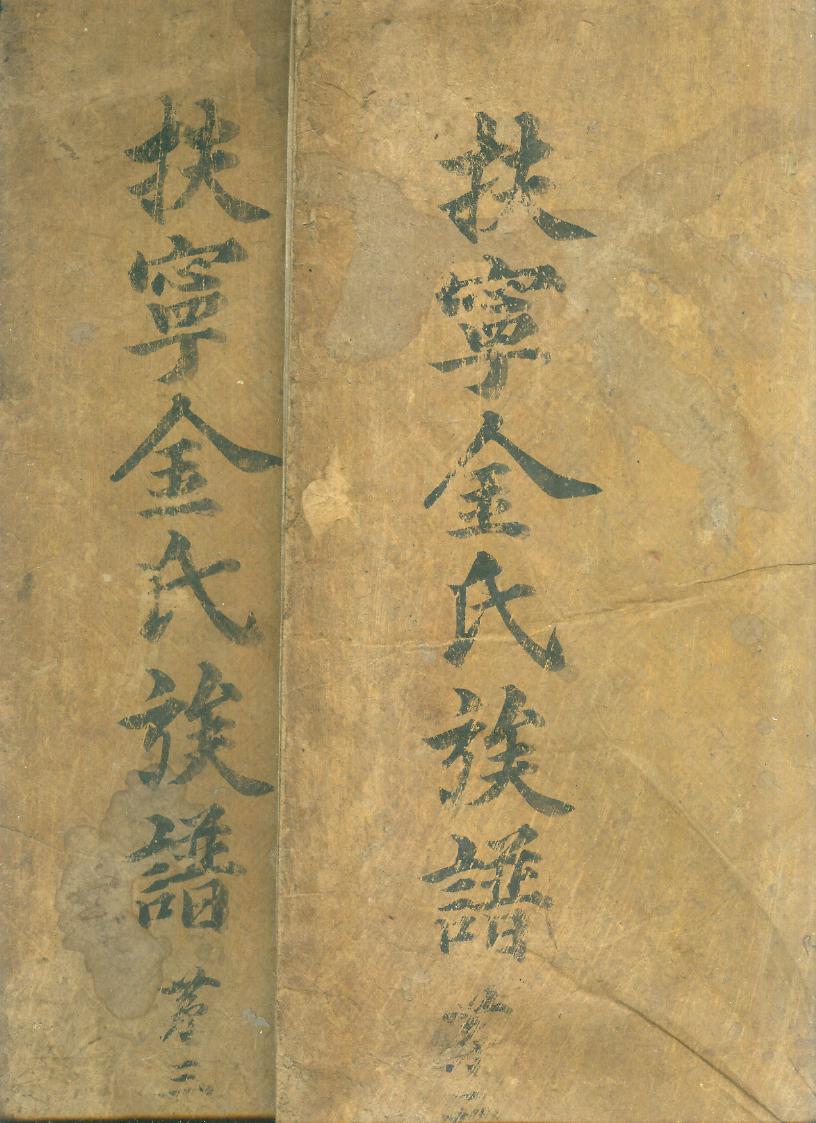 扶寧金氏族譜苐
扶寧金氏族譜苐三